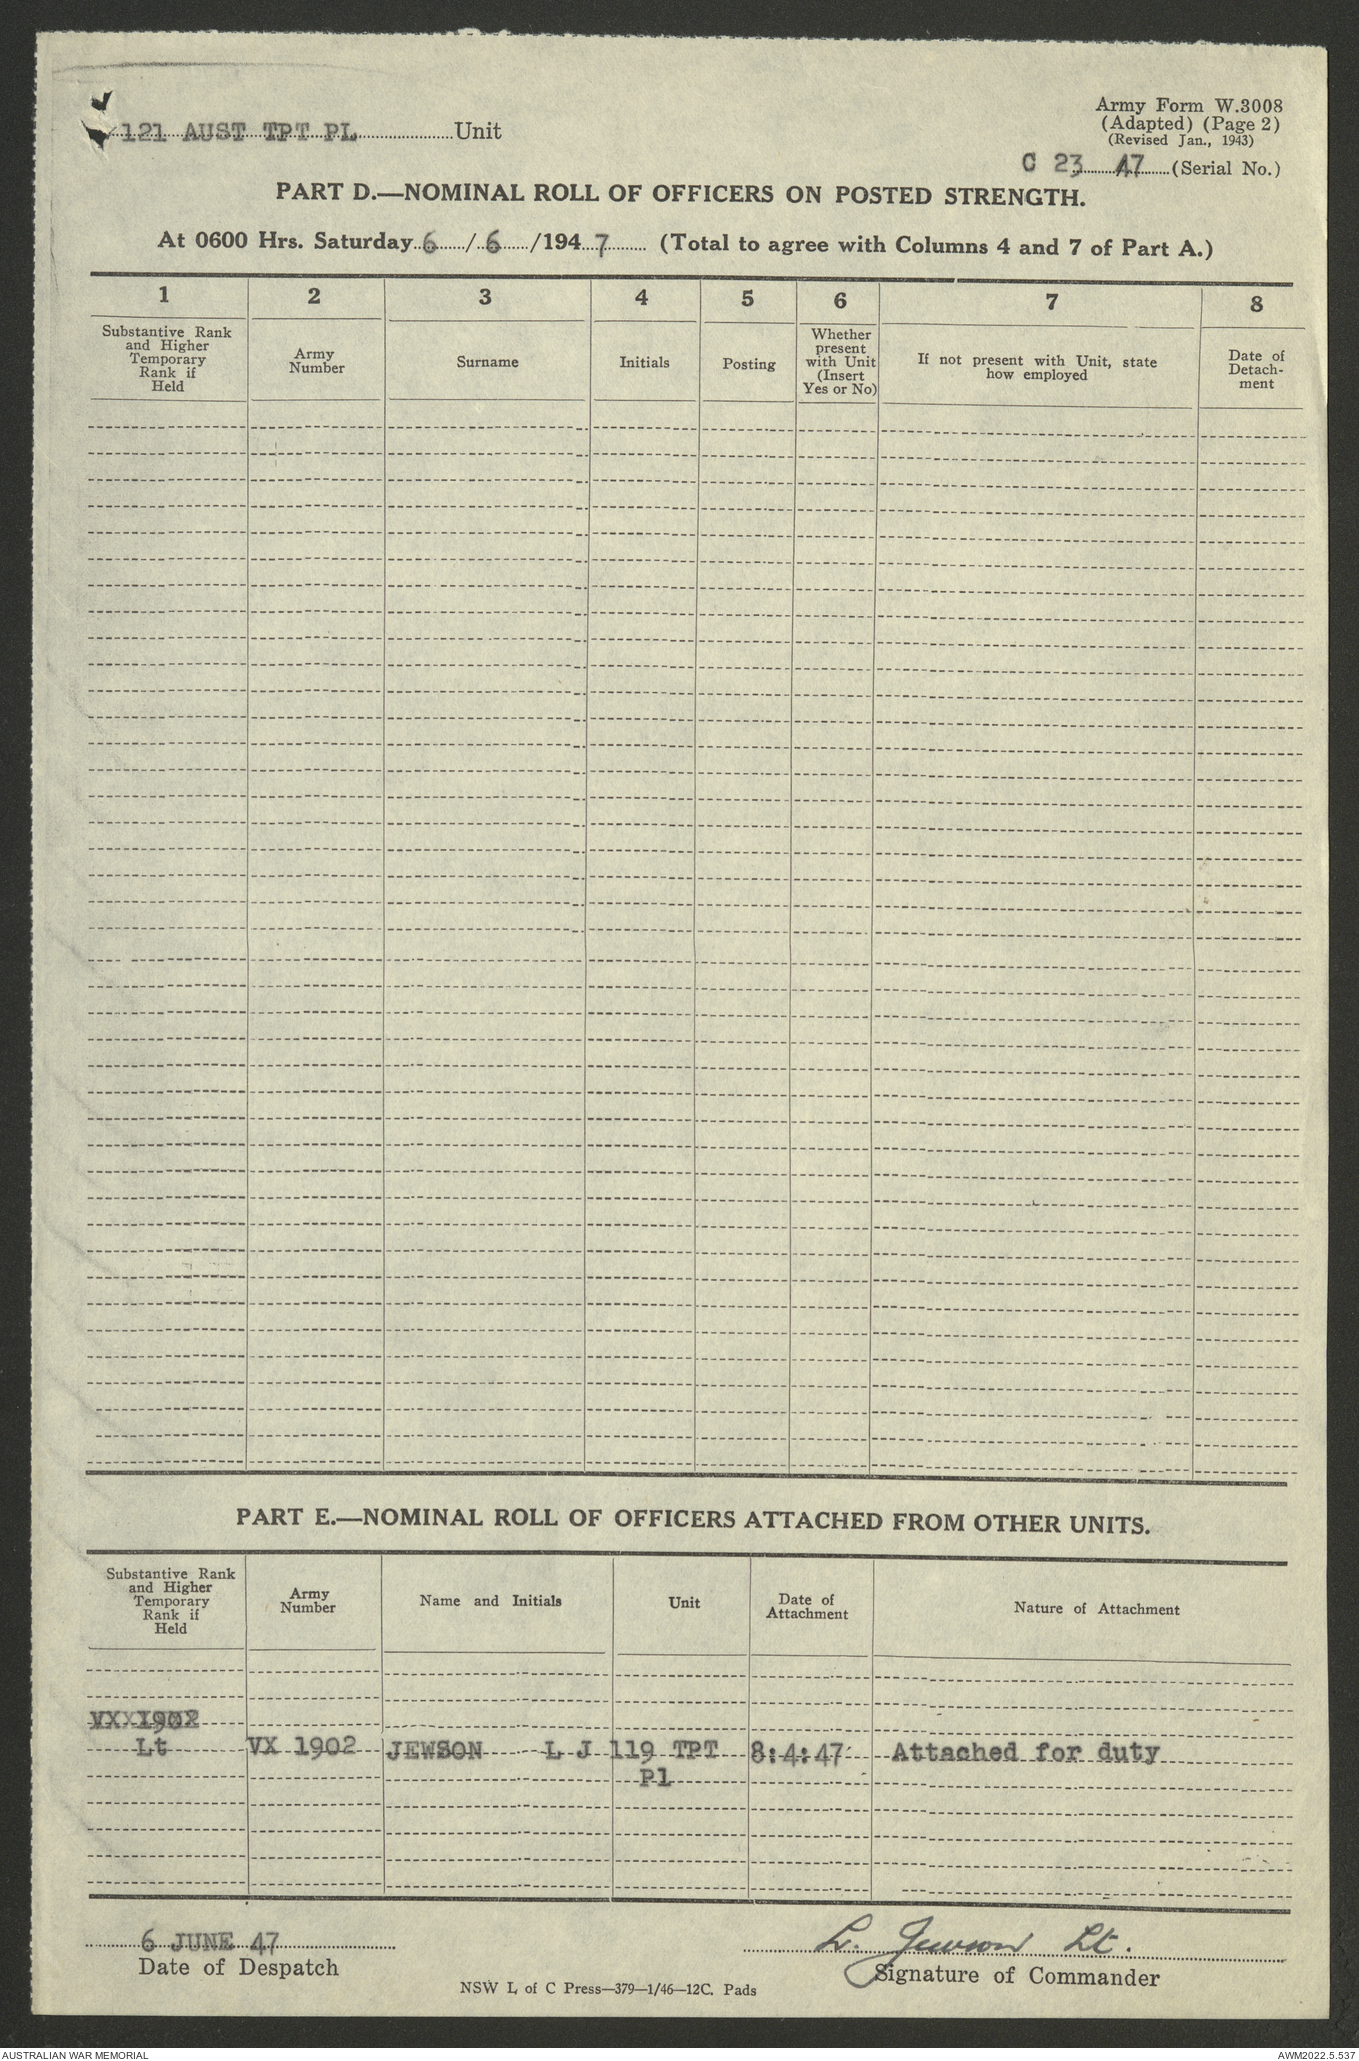 121 AUST TPT PL Unit
Army Form W.3008
(Adapted) (Page 2)
(Revised Jan., 1943)
C 23 47 (Serial No.)
PART D.—NOMINAL ROLL OF OFFICERS ON POSTED STRENGTH.
At 0600 Hrs. Saturday 6 / 6 /1947 (Total to agree with Columns 4 and 7 of Part A.)
1 2 3 4 5 6 7 8
Substantive Rank
and Higher
Temporary
Rank if
Held
Army
Number
Surname
Initials
Posting
Whether
present
with Unit
(Insert
Yes or No)
If not present with Unit, state
how employed
Date of
Detach-
ment
PART E.—NOMINAL ROLL OF OFFICERS ATTACHED FROM OTHER UNITS.
Substantive Rank
and Higher
Temporary
Rank if
Held
Army
Number
Name and Initials
Unit
Date of
Attachment
Nature of Attachment
VX 1902
Lt VX 1902 JEWSON L J 119 TPT 8:4:47 Attached for duty
Pl
6 JUNE 47
Date of Despatch
L. Jewson Lt.
Signature of Commander
NSW L of C Press—379—1/46—12C. Pads
AUSTRALIAN WAR MEMORIAL
AWM2022.5.537